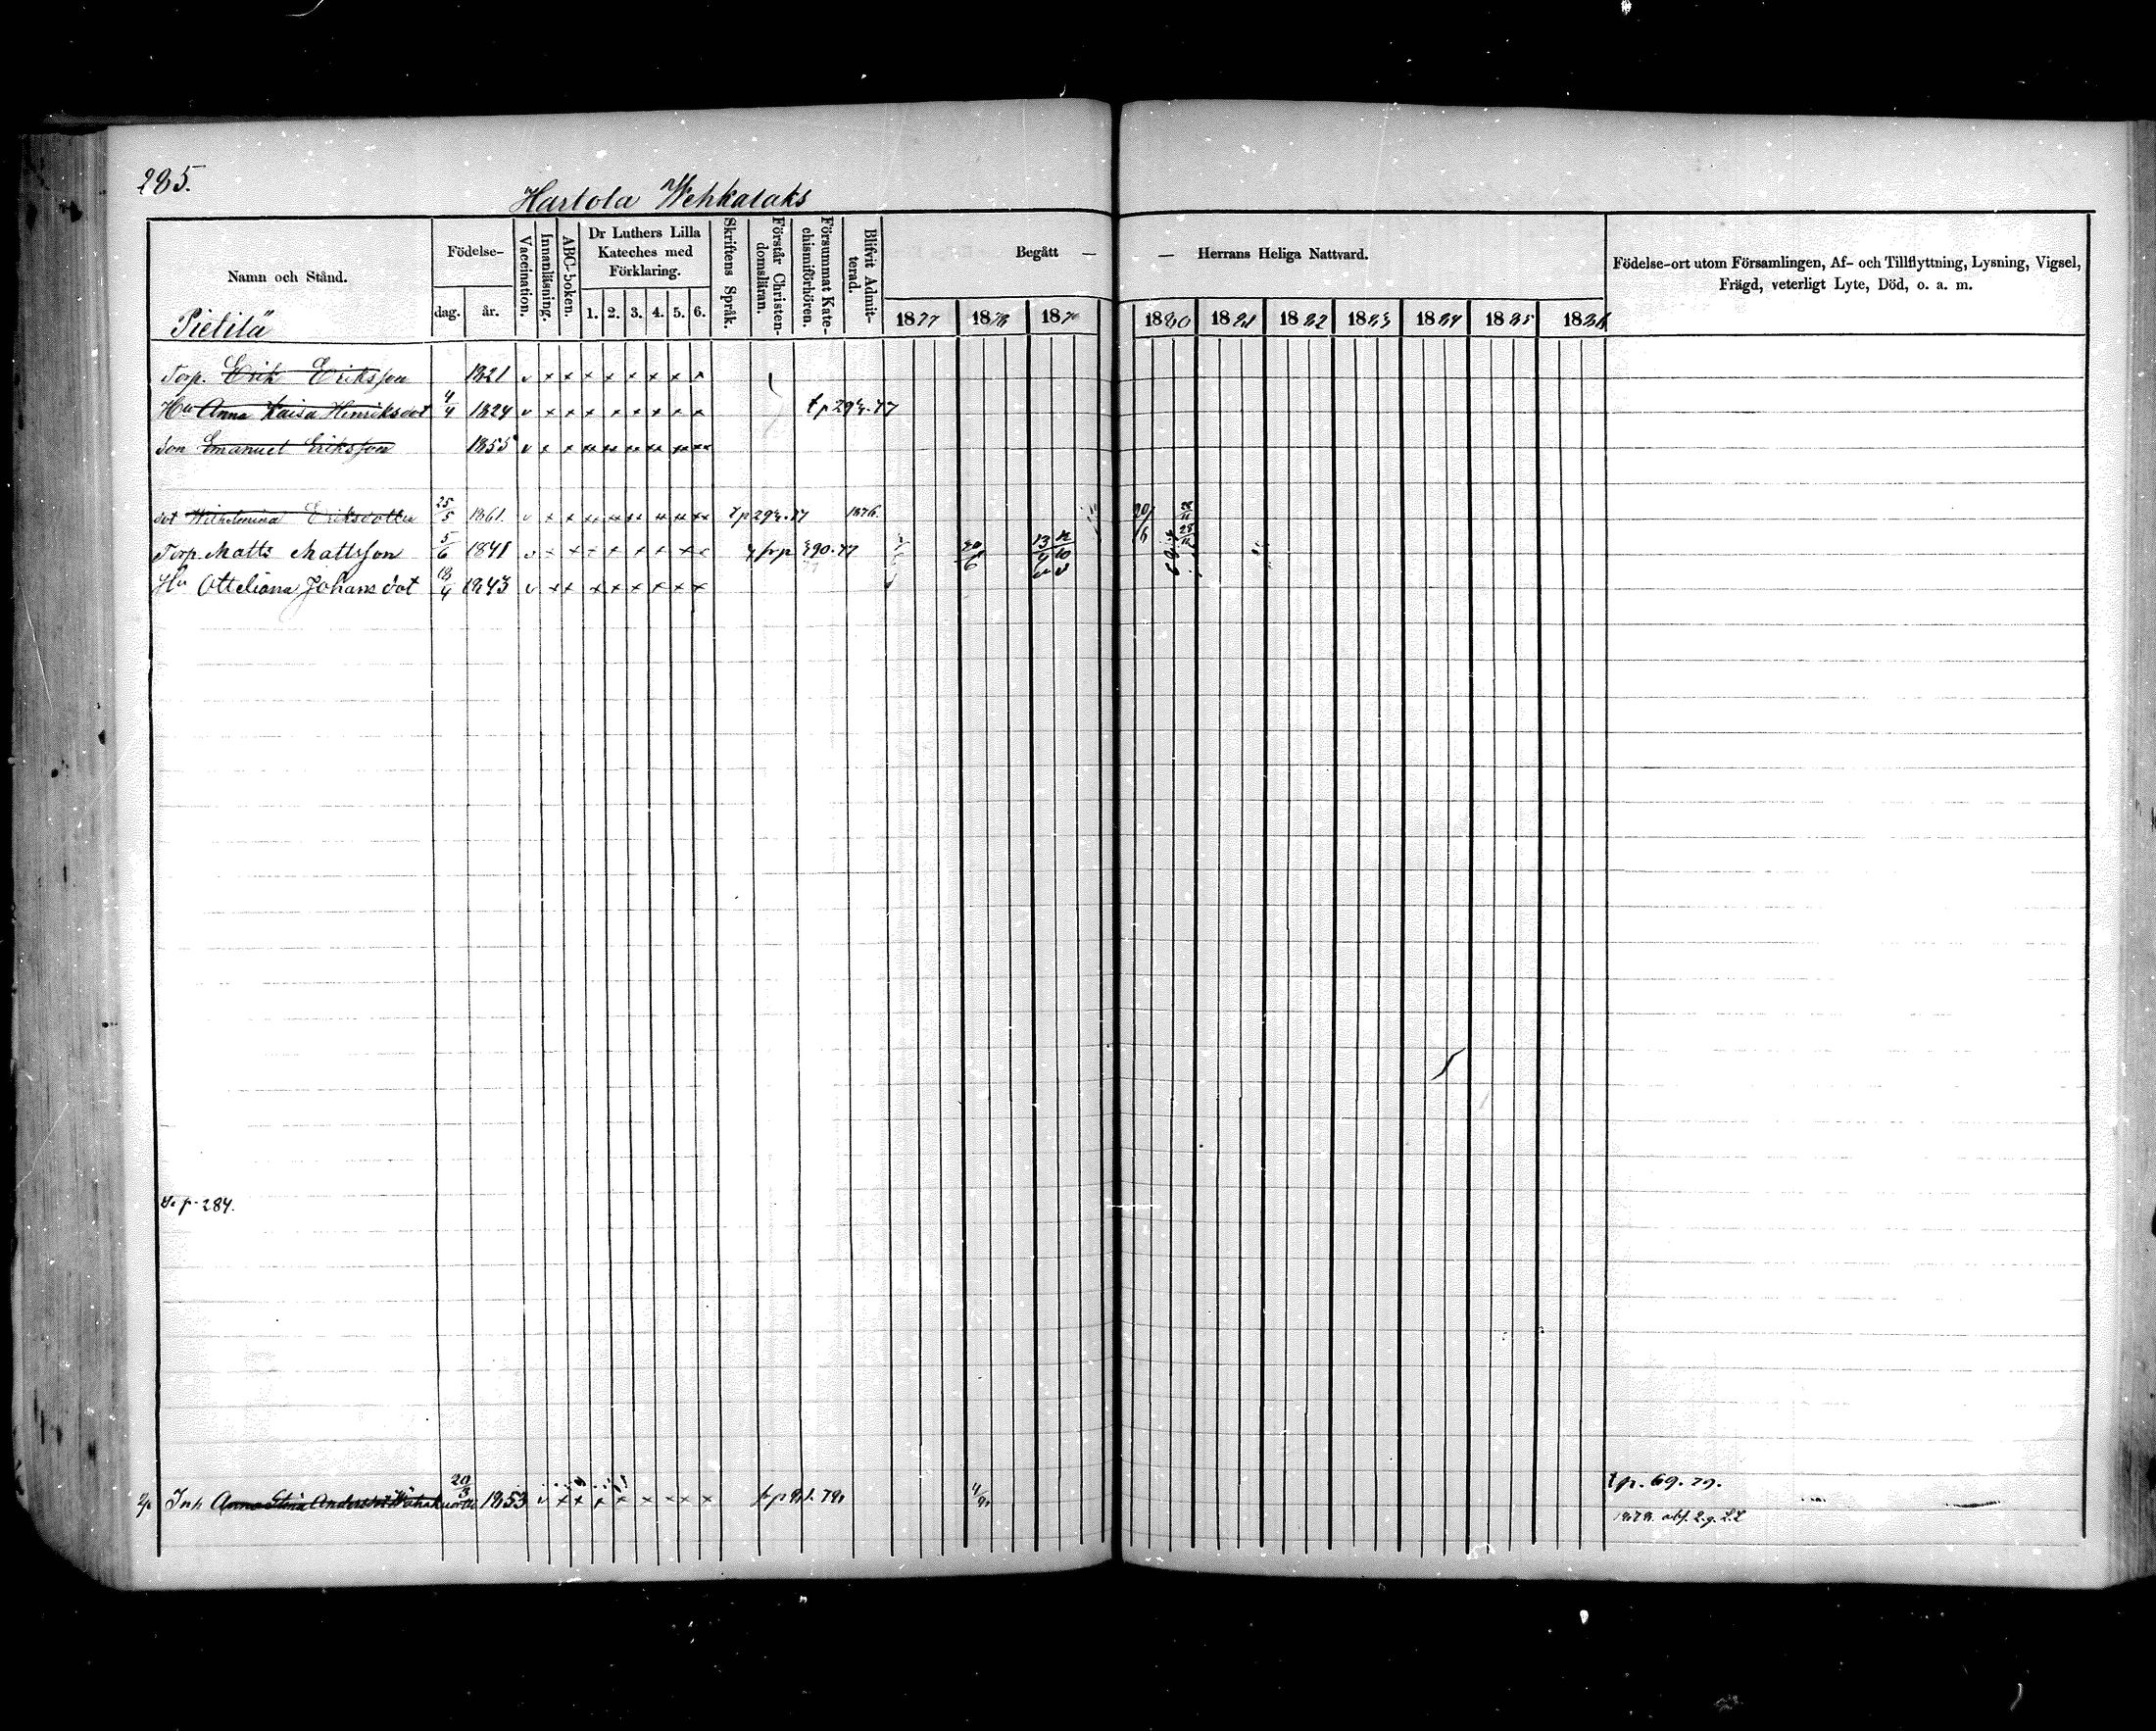 285.
Hartola Wehkataks
Namn och Stånd.
Födelse-
dag. år.
Vaccination.
Innanläsning.
ABC-boken.
Dr Luthers Lilla
Kateches med
Förklaring.
1. 2. 3. 4. 5. 6.
Skriftens Språk.
Förstår Christen-
domsläran.
Försummat Kate-
chismiförhören.
Blifvit Admit-
terad.
Begått — — Herrans Heliga Nattvard.
1877 1878 1879 1880 1881 1882 1883 1884 1885 1886
Födelse-ort utom Församlingen, Af- och Tillflyttning, Lysning, Vigsel,
Frägd, veterligt Lyte, Död, o. a. m.
Pietilä
Torp. Erik Eriksson 1821 v x x x x x x x x
Hu Anna Kaisa Henriksdot 4/4 1824 v x x x x x x x x
Son Emanuel Eriksson 1855 v x x
dot Wilhelmina Eriksdotter 25/5 1861 v x x 1876.
Torp. Matts Mattsson 5/6 1841 v x x x x x x x x
Hu Otteliana Johansdot 18/4 1843 v x x x x x x x x
p. 284.
Inh Anna Stina Andersdot 20/3 1853 v x x x x x x x x
tp. 69. 79.
1878.